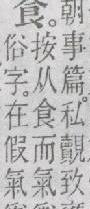 朝事篇。私覿致
食。
按从食而氣
俗字。在假氣